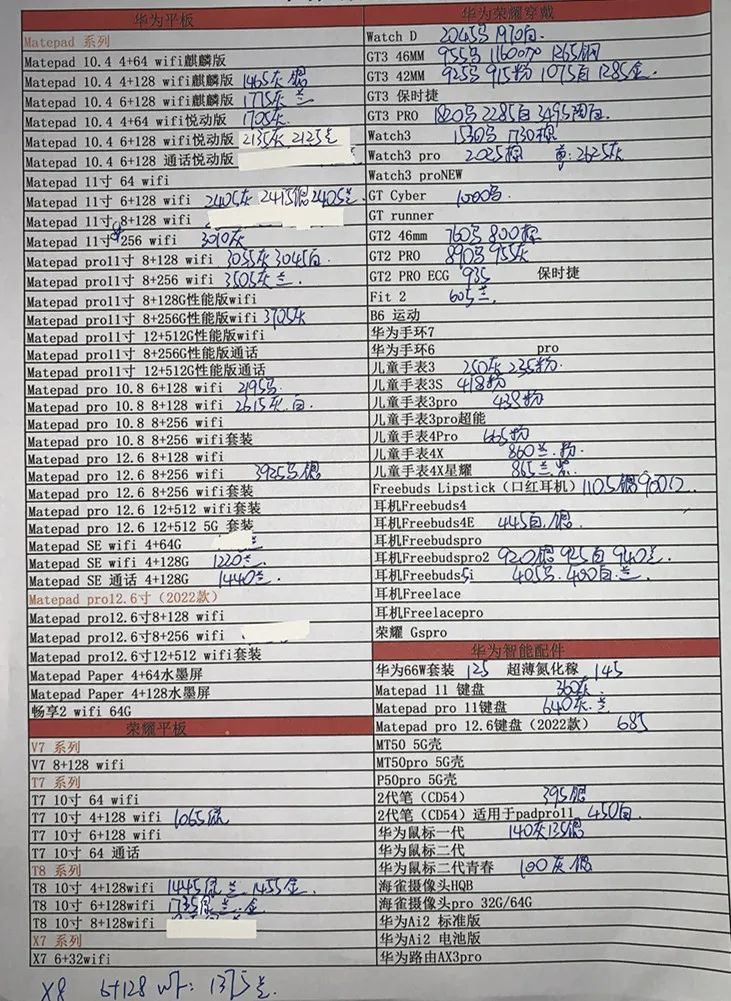 华为平板
Matepad 系列
Matepad 10.4 4+64 wifi麒麟版
Matepad 10.4 4+128 wifi麒麟版 1465灰 银
Matepad 10.4 6+128 wifi麒麟版 1775灰 兰
Matepad 10.4 4+64 wifi悦动版 1705灰
Matepad 10.4 6+128 wifi悦动版 2135灰 2125兰
Matepad 10.4 6+128 通话悦动版
Matepad 11寸 64 wifi
Matepad 11寸 6+128 wifi 2405灰 2415银 2405兰
Matepad 11寸 8+128 wifi
Matepad 11寸 256 wifi 3010灰
Matepad pro11寸 8+128 wifi 3035灰 3045白
Matepad pro11寸 8+256 wifi 3505灰 兰
Matepad pro11寸 8+128G性能版wifi
Matepad pro11寸 8+256G性能版wifi 3705灰
Matepad pro11寸 12+512G性能版wifi
Matepad pro11寸 8+256G性能版通话
Matepad pro11寸 12+512G性能版通话
Matepad pro 10.8 6+128 wifi 2195乌
Matepad pro 10.8 8+128 wifi 2615灰.白
Matepad pro 10.8 8+256 wifi
Matepad pro 10.8 8+256 wifi套装
Matepad pro 12.6 8+128 wifi
Matepad pro 12.6 8+256 wifi 3925乌 银
Matepad pro 12.6 8+256 wifi套装
Matepad pro 12.6 12+512 wifi套装
Matepad pro 12.6 12+512 5G 套装
Matepad SE wifi 4+64G 兰
Matepad SE wifi 4+128G 1220兰
Matepad SE 通话 4+128G 1440兰
Matepad pro12.6寸（2022款）
Matepad pro12.6寸8+128 wifi
Matepad pro12.6寸8+256 wifi
Matepad pro12.6寸12+512 wifi套装
Matepad Paper 4+64水墨屏
Matepad Paper 4+128水墨屏
畅享2 wifi 64G
荣耀平板
V7 系列
V7 8+128 wifi
T7 系列
T7 10寸 64 wifi
T7 10寸 4+128 wifi 1065
T7 10寸 6+128 wifi
T7 10寸 64 通话
T8 系列
T8 10寸 4+128wifi 1445 兰. 1455金.
T8 10寸 6+128wifi 1735 兰.金
T8 10寸 8+128wifi
X7 系列
X7 6+32wifi
X8 6+128 wifi: 1375兰.
华为荣耀穿戴
Watch D 2045乌 1970白
GT3 46MM 955乌 1160 1265钢
GT3 42MM 925乌 915粉 1075白 1285金.
GT3 保时捷
GT3 PRO 1820乌 2285白 3495陶白
Watch3 1530乌 1730棕
Watch3 pro 2025棕 尊:2625灰
Watch3 proNEW
GT Cyber 1000乌.
GT runner
GT2 46mm 760乌 800棕
GT2 PRO 890乌 955灰
GT2 PRO ECG 935 保时捷
Fit 2 605兰.
B6 运动
华为手环7
华为手环6 pro
儿童手表3 250灰 235粉.
儿童手表3S 418粉
儿童手表3pro 438粉
儿童手表3pro超能
儿童手表4Pro 665粉
儿童手表4X 860兰.粉.
儿童手表4X星耀 865兰.紫.
Freebuds Lipstick（口红耳机） 1105银 900口.
耳机Freebuds4
耳机Freebuds4E 445白.银.
耳机Freebudspro
耳机Freebudspro2 920银 925白 940兰.
耳机Freebuds5i 405乌. 400白.兰.
耳机Freelace
耳机Freelacepro
荣耀 Gspro
华为智能配件
华为66W套装 125 超薄氮化稼 145
Matepad 11 键盘 360灰.
Matepad pro 11键盘 640灰.兰
Matepad pro 12.6键盘（2022款） 685
MT50 5G壳
MT50pro 5G壳
P50pro 5G壳
2代笔（CD54） 395银
2代笔（CD54）适用于padpro11 450白.
华为鼠标一代 140灰 135银
华为鼠标二代
华为鼠标二代青春 100灰.银.
海雀摄像头HQB
海雀摄像头pro 32G/64G
华为Ai2 标准版
华为Ai2 电池版
华为路由AX3pro